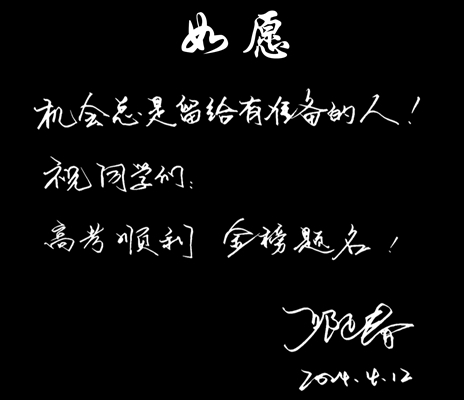 如愿
机会总是留给有准备的人！
祝同学们：
高考顺利 金榜题名！
2024.4.12